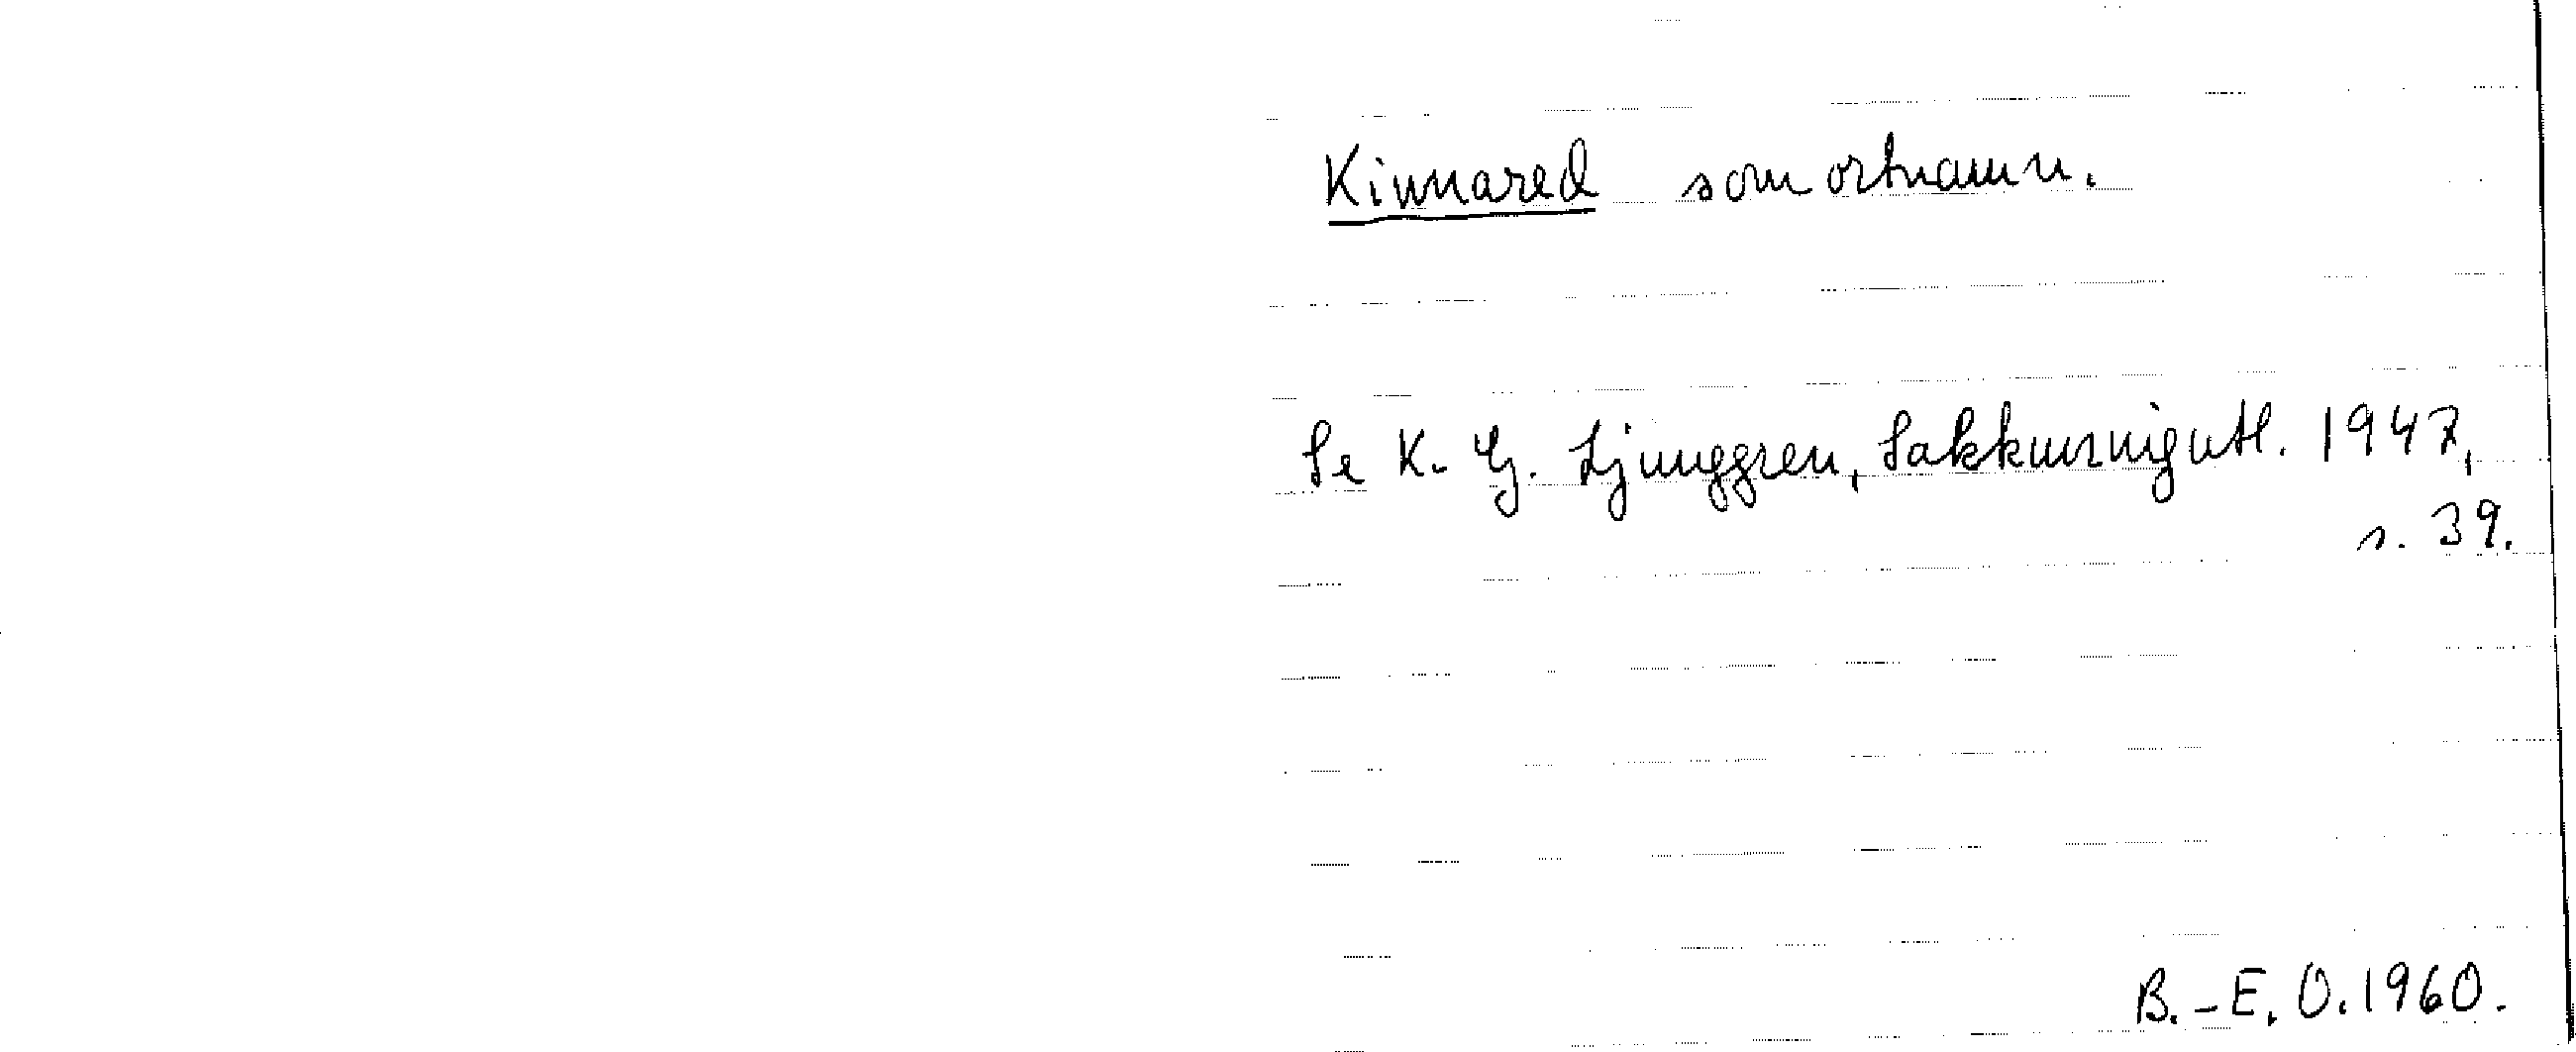 Kinnared som ortnamn.
Se K. G. Ljunggren, Sakkunnigutl. 1947,
s. 39.
B.-E. O. 1960.